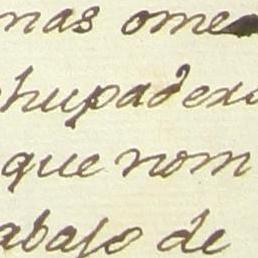 mas ome
chupadero
que nom
abajo de